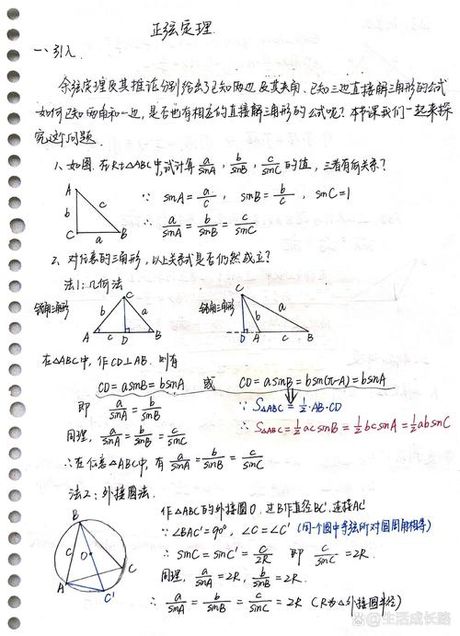 正弦定理
一、引入
余弦定理及其推论分别给出了已知两边及其夹角、已知三边直接解三角形的公式
如何已知两角和一边，是否也有相应的直接解三角形的公式呢？本节课我们一起来探
究这个问题.
1、如图.在Rt△ABC中,试计算 a/sinA , b/sinB , c/sinC 的值，三者有何关系？
A b c C a B
∵ sinA = a/c , sinB = b/c , sinC = 1
∴ a/sinA = b/sinB = c/sinC
2、对任意的三角形，以上关系式是否仍然成立？
法1：几何法
锐角三角形 C b a A D B
钝角三角形 C b a D A c B
在△ABC中，作CD⊥AB.则有
CD = asinB = bsinA 或 CD = asinB = bsin(π-A) = bsinA
即 a/sinA = b/sinB
∵ S△ABC = 1/2·AB·CD
同理，a/sinA = b/sinB = c/sinC
∴ S△ABC = 1/2acsinB = 1/2bcsinA = 1/2absinC
∴在任意△ABC中,有 a/sinA = b/sinB = c/sinC
法2：外接圆法.
作△ABC的外接圆O.过B作直径BC',连接AC'
B c O A C C'
∵ ∠BAC'=90°, ∠C=∠C' (同一个圆中等弦所对圆周角相等)
∴ sinC = sinC' = c/2R 即 c/sinC = 2R.
同理, a/sinA = 2R, b/sinB = 2R.
∴ a/sinA = b/sinB = c/sinC = 2R (R为△外接圆半径)
@生活成长路